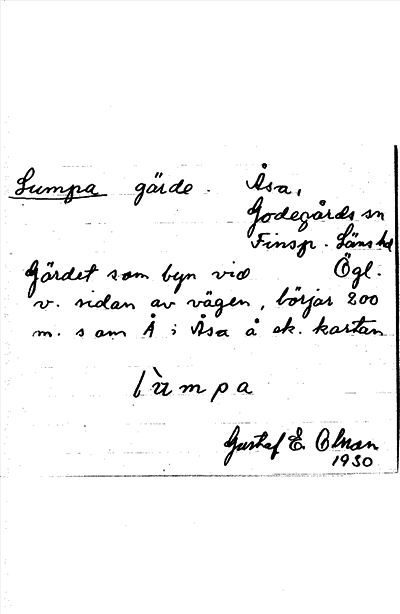 Lumpa gärde. Åsa,
Godegårds sn
Finsp. Läns hd
Gärdet som byn vid Ögl.
v. sidan av vägen, börjar 200
m. s om Å i Åsa å ek. kartan
lùmpa
Gustaf E. Olson
1930